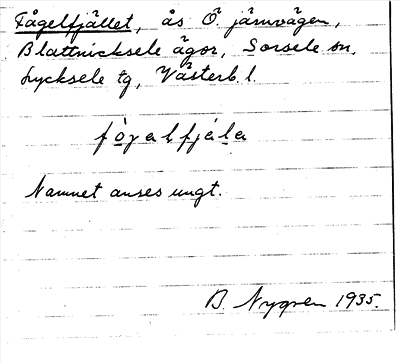 Fågelfjället, ås Ö. järnvägen,
Blattnicksele ägor, Sorsele sn,
Lycksele tg, Västerb. l.
fò̱gəlfjäḻa
Namnet anses ungt.
B. Nygren 1935.